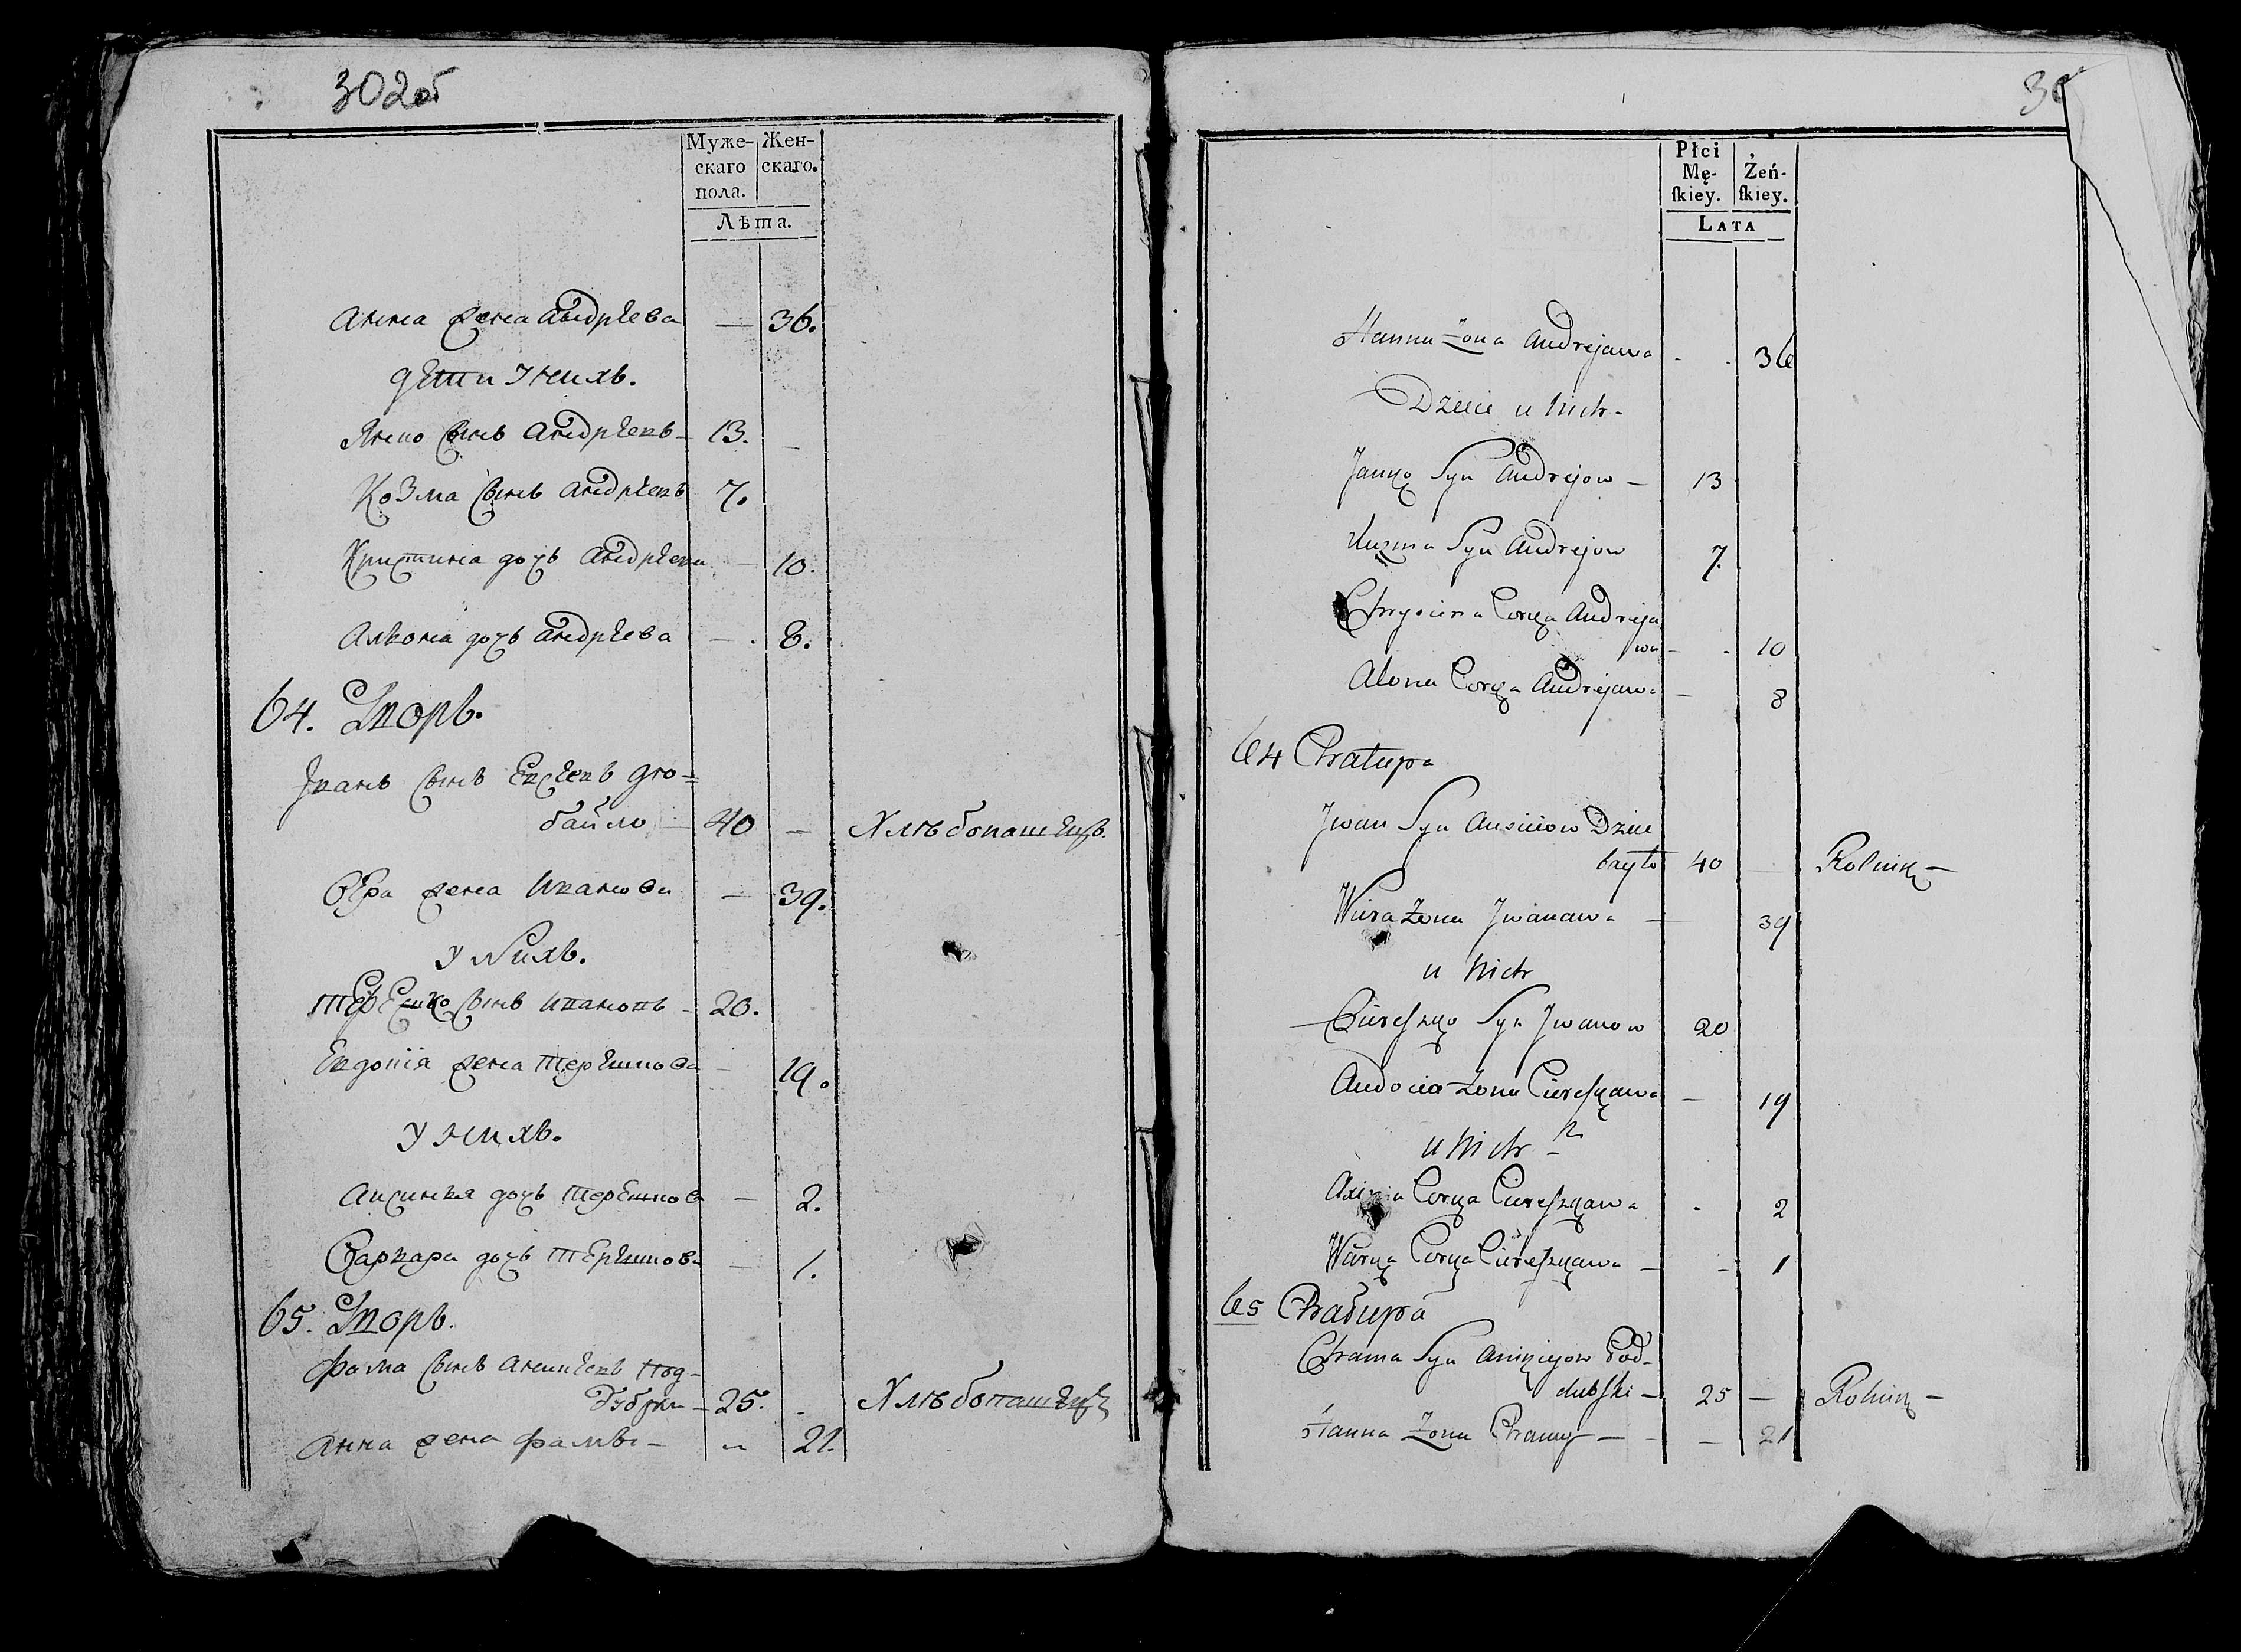 302об
Муже- Жен-
скаго скаго.
пола.
Лѣта.
Анна жена Андрѣева — 36.
Дети У нихъ.
Янко сынъ Андрѣевъ 13. —
Козма сынъ Андрѣевъ 7.
Кристина дочь Андрѣева — 10.
Алѣона дочь Андрѣева — 8.
64. Дворъ.
Іванъ сынъ Евсѣевъ
байло — 40 — Хлѣбопашецъ.
Вѣра жена Иванова — 39.
У Нихъ.
Терешко сынъ Ивановъ — 20.
Евдокія жена Терѣшкова — 19.
У нихъ.
Аксинья дочь Терешкова — 2.
Варвара дочь Терѣшкова — 1.
65. Дворъ.
Фама сынъ Аникѣевъ Под-
25. — Хлѣбопашецъ
Анна жена Фамы — 21.
Płci Żeń-
Mę- ſkiey.
ſkiey.
LATA
Hanna Żona Andrejawa 36
Dzieci u Nich —
Janko Syn Andrejow — 13
Kuzma Syn Andrejow 7.
Chryscina Corka Andreja
wa — 10
Alona Corka Andrejawa — 8
64 Chatupa
Jwan Syn Ausiiow Dzie
bayło 40 — Rolnik —
Wiera Żona Jwanawa — 39
u Nich
Cireſzko Syn Jwanow 20
Audocia Żona Cireſzkawa — 19
u Nich —
Axinia Corka Cireſzkawa 2
Warka Corka Cireſzkawa — 1
65 Chatupa
Chama Syn Anikiejow Pod-
dubſki — 25 — Rolnik —
Hanna Żona Chamy — — 21